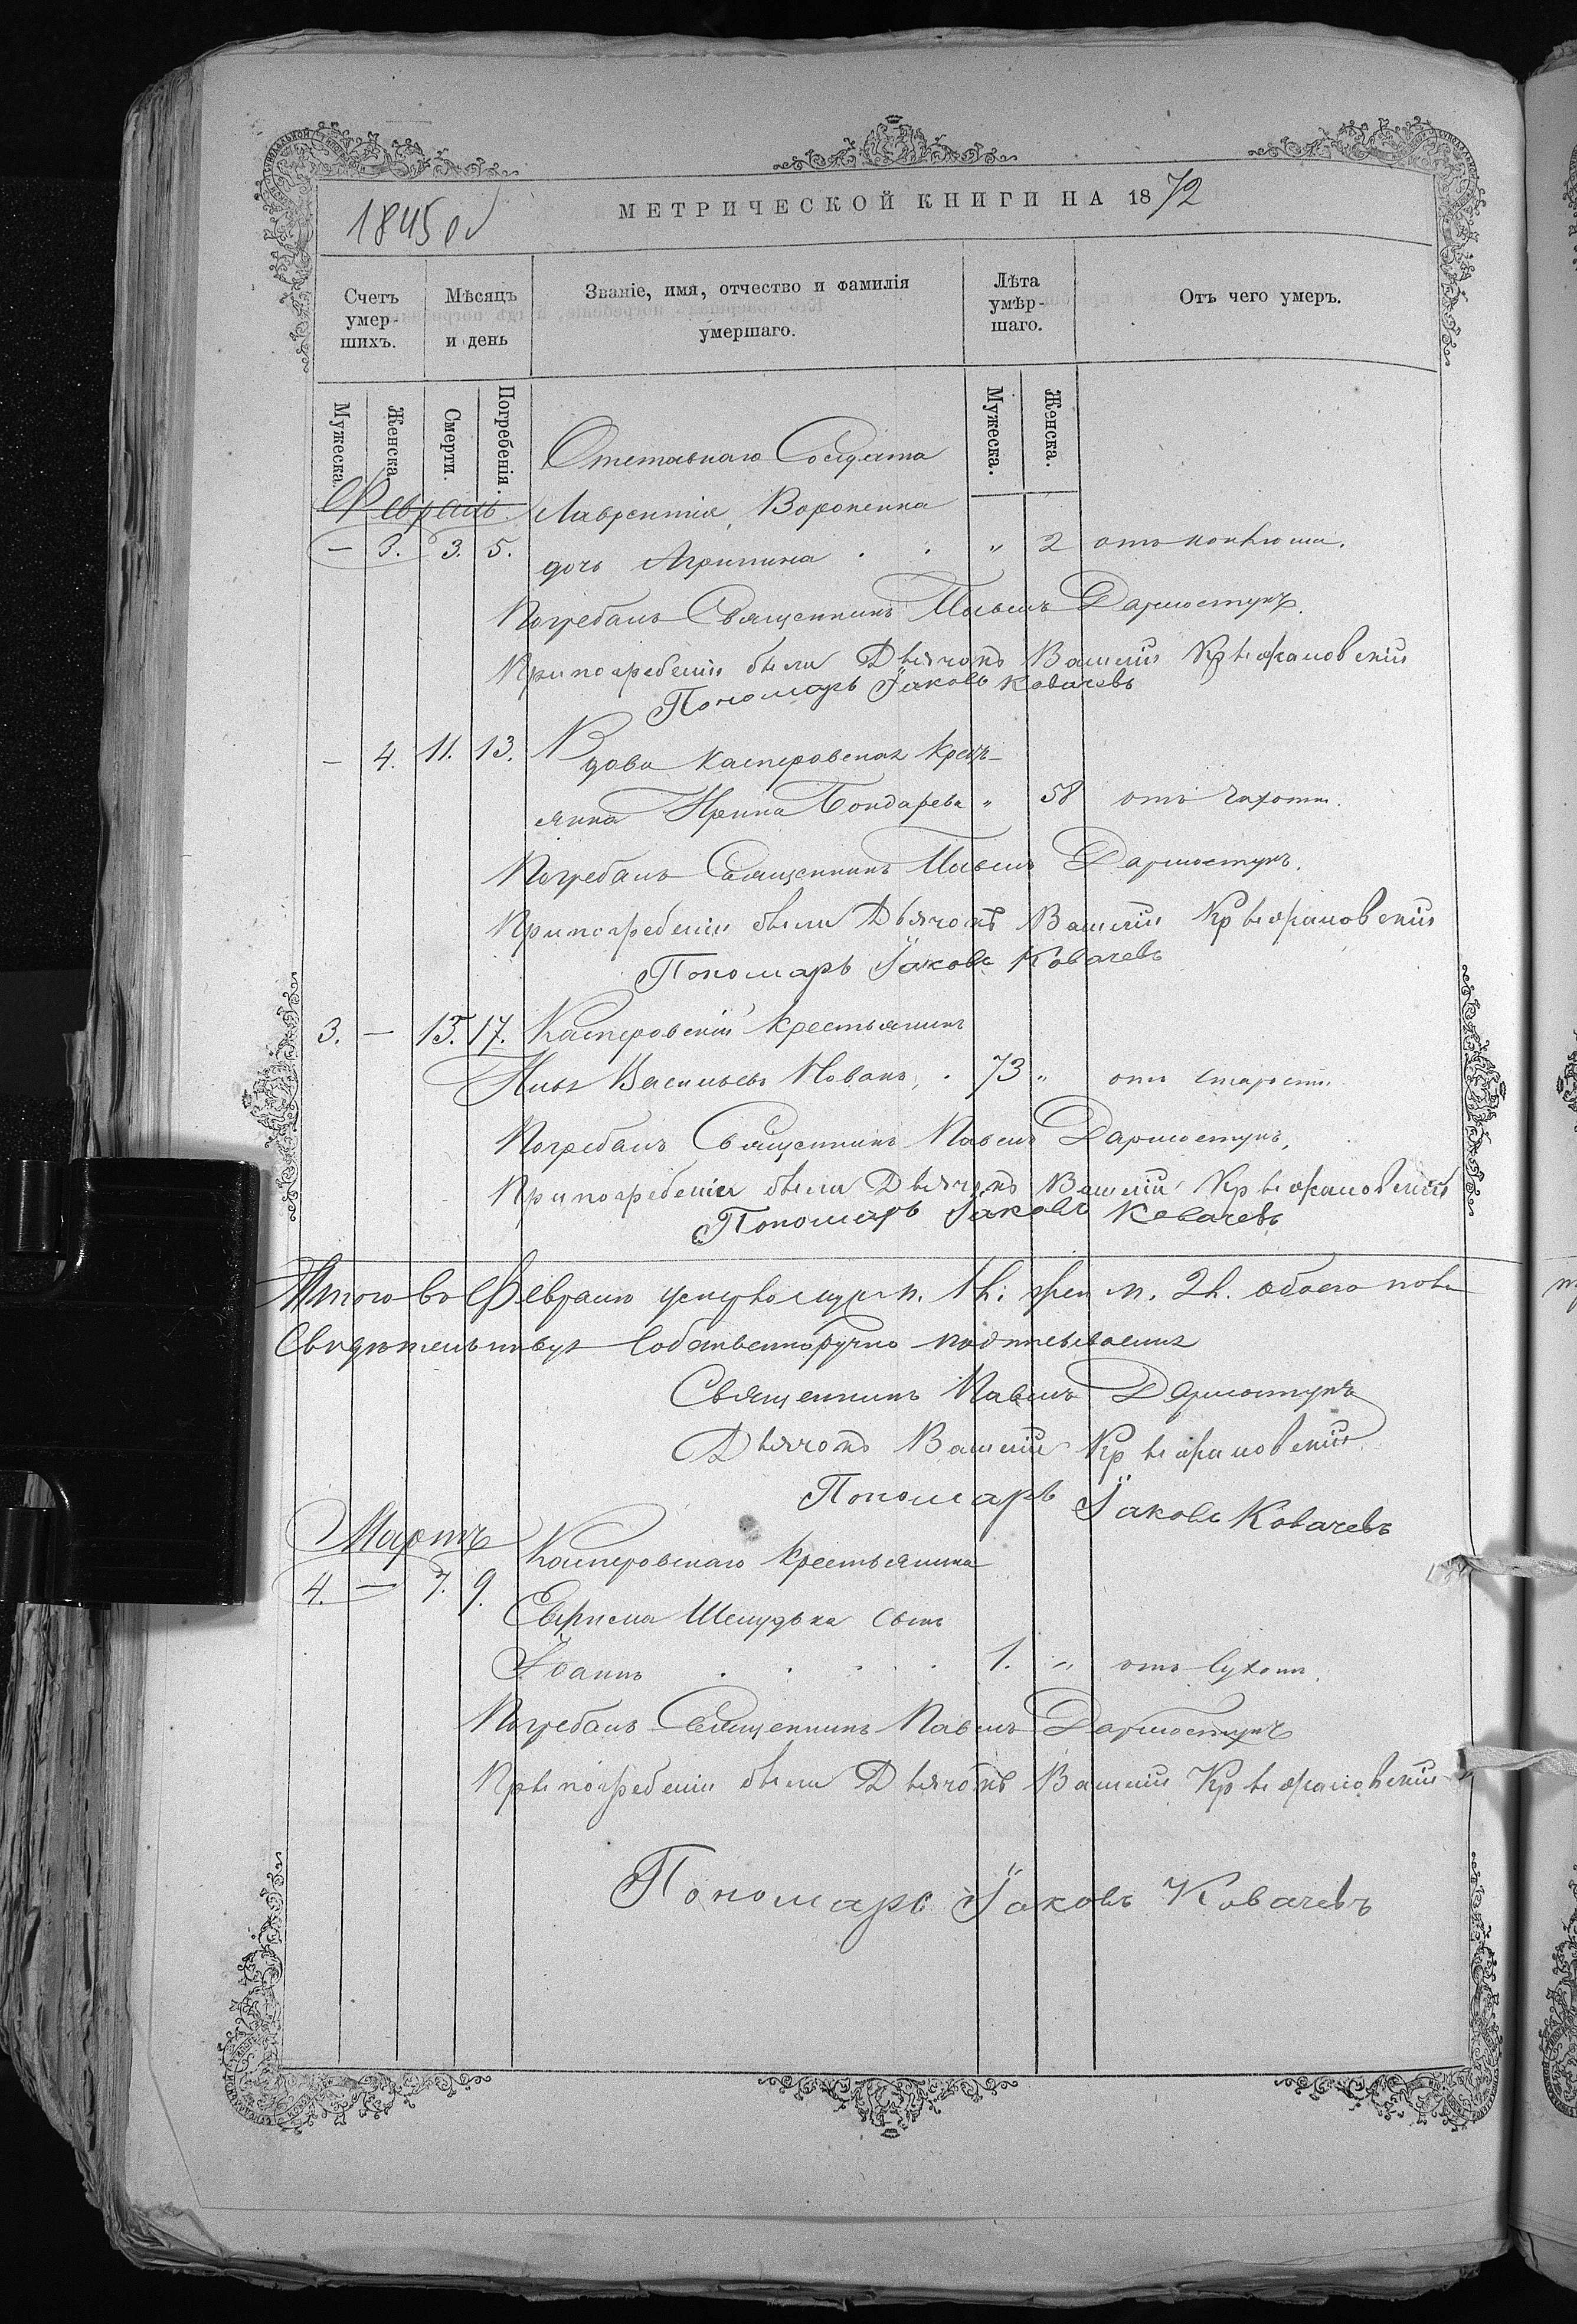 1845 об
МЕТРИЧЕСКОЙ КНИГИ НА 1872
Счетъ умер- шихъ.
Мѣсяцъ и день
Званіе, имя, отчество и фамилія умершаго.
Лѣта умѣр- шаго.
Отъ чего умеръ.
Мужеска. Женска. Смерти. Погребенія. Мужеска. Женска.
Отставнаго Солдата
Февраль Лаврентія Вороненка
— 3. 3. 5. дочь Агрипина . . " 2 отъ коклюша.
Погребалъ Священникъ Павелъ Дармостукъ.
При погребеніи были Дьячокъ Василій Крыжановскій
Пономарь Іаковъ Ковачевъ
— 4. 11. 13. Вдова Касперовская крест-
янка Ирина Бондарева " 58 отъ чахотки.
Погребалъ Священникъ Павелъ Дармостукъ.
При погребеніи были Дьячокъ Василій Крыжановскій
Пономарь Іаковъ Ковачевъ
3. — 15. 17. Касперовскій крестьянинъ
Илья Васильевъ Новакъ . 73 " отъ старости
Погребалъ Священникъ Павелъ Дармостукъ.
При погребеніи были Дьячокъ Василій Крыжановскій
Пономарь Іаковъ Ковачевъ
Итого въ Февралѣ умерло муж. п. 1 ч. жен. п. 2 ч. обоего пола
Свидѣтельствуя собственноручно подписываемся
Священникъ Павелъ Дармостукъ
Дьячокъ Василій Крыжановскій
Пономарь Іаковъ Ковачевъ
Мартъ Касперовскаго крестьянина
4. — 7. 9. Евфима Шелудька сынъ
Іоаннъ . . . . 1. " отъ сухотъ.
Погребалъ Священникъ Павелъ Дармостукъ
Пры погребеніи были Дьячокъ Василій Крыжановскій
Пономарь Іаковъ Ковачевъ